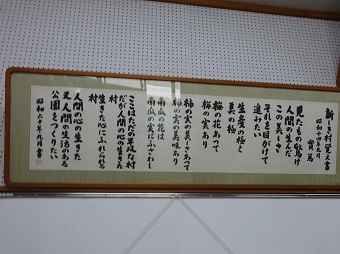 新しき村覚え書
昭和十四年九月 實篤
見たもの驚け
人間の生んだ
この美しさ
それを目がけて
進みたい
生産の極と
美の極
梅の花あって
梅の実あり
柿の実の美しさあって
柿の実の美味あり
南瓜の花は
南瓜の実にふさわし
ここはただの平凡な村
だが人間の心の生きた
村
生きた心にふれられる
村
人間の心の生きた
又人間の生活のある
公園をつくりたい
昭和六十年九月書